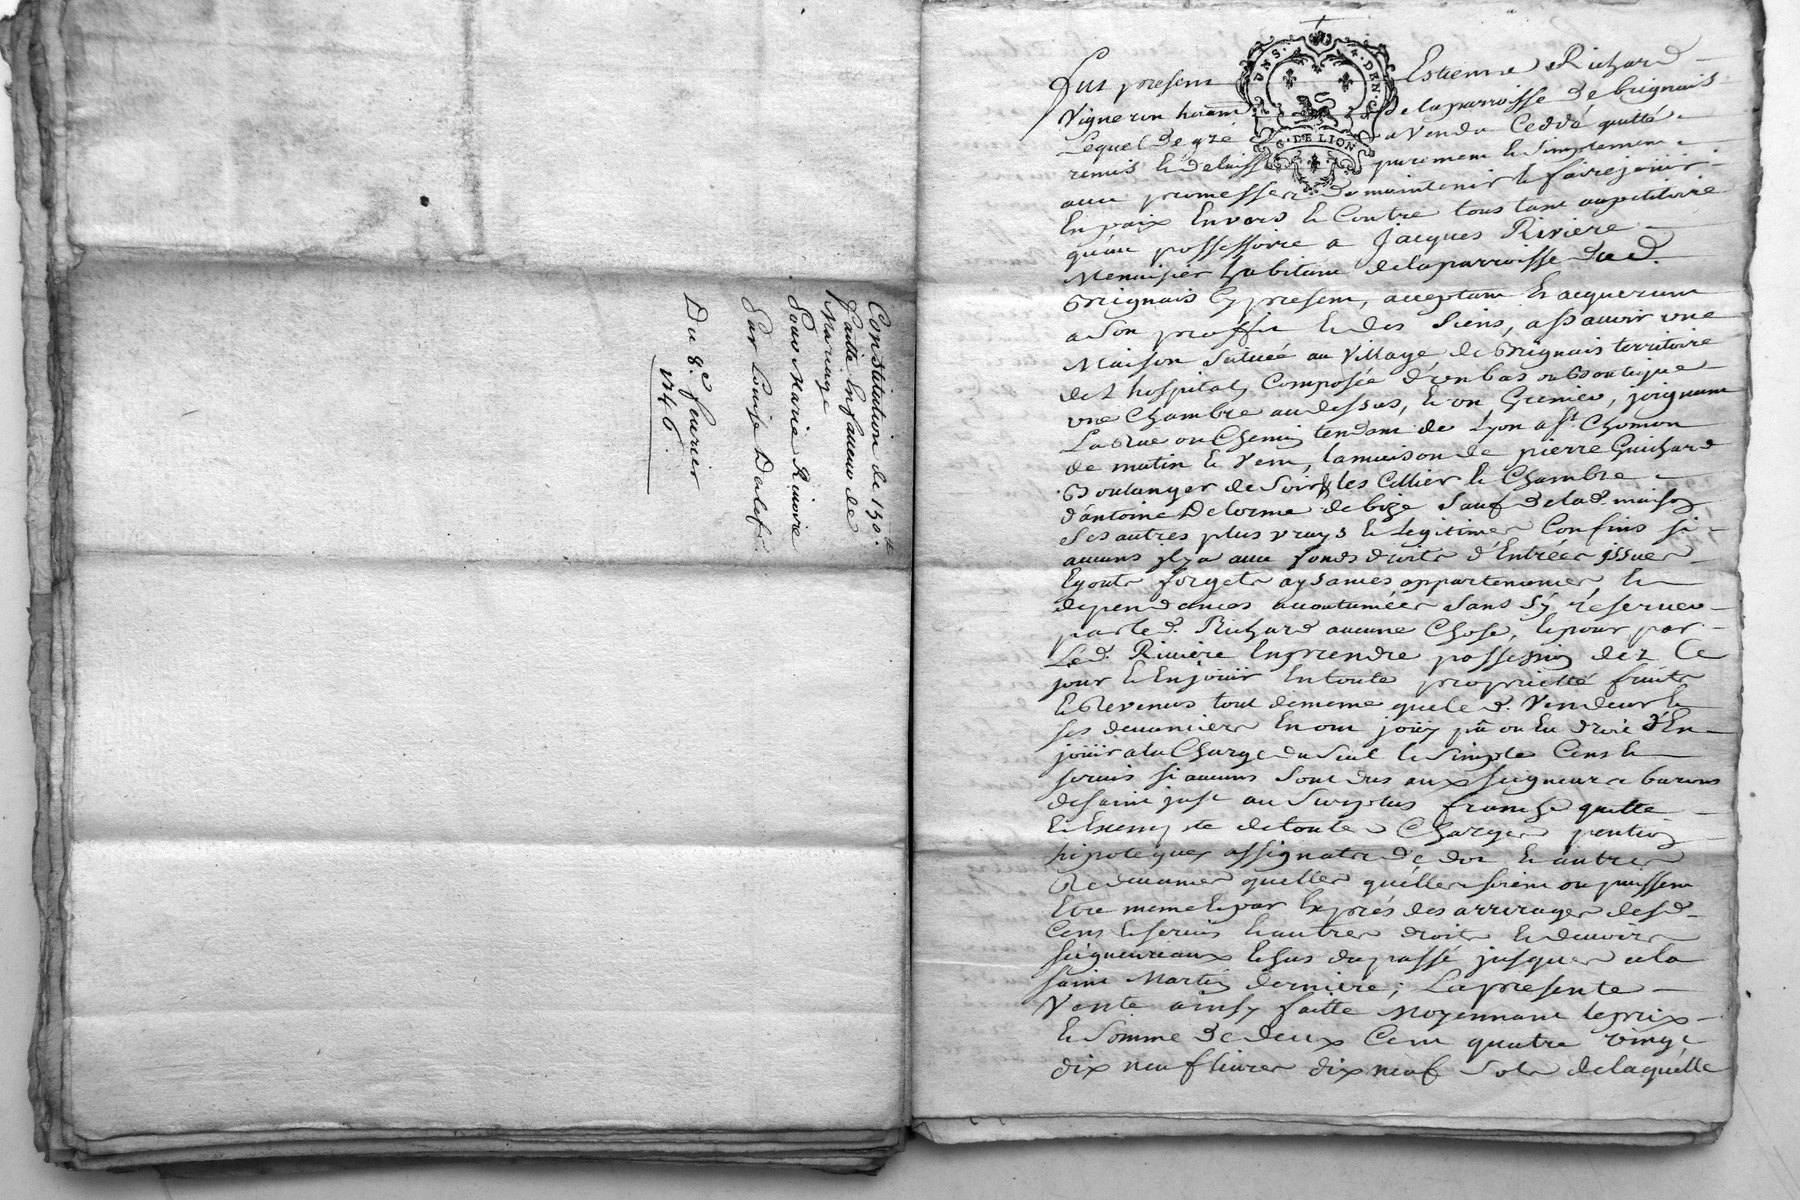 Constitution de 150.ᵗᵗ
faitte En faveur de
Mariage
Pour Marie Riviere
Par Louise Dalef
Du 8.e feurier
1746.
Fut present Estienne Richard
Vigneron habitant de la parroisse de brignais
Lequel de gré a Vendu Ceddé quitté
remis & delaissé purement & simplement
avec promesse de maintenir & faire jouir
En paix Envers & Contre tous tant au petitoire
qu'au possessoire a Jacques Riviere
Menuisier habitant de la parroisse dud.
Brignais Cy present, acceptant & acquerant
a Son proffit & des Siens, assavoir une
Maison Scituée au Village de Brignais territoire
de l hospital, Composée d'un bas ou Boutique
une Chambre au dessus, & un Grenier, joignant
La Rue ou Chemin tendant de Lyon a St. Chomon
de matin & Vent, la maison de pierre Guichard
Boulanger de Soir, les Cellier & Chambre
d'antoine Delorme de bize Sauf de lad. maison
Ses autres plus vrays & Legitimes Confins si
aucuns y a avec fonds droits d'Entrées jssues
Egouts forgets aysances appartenances, &
dependances accoutumées Sans s'y réserver
par led. Richard aucune Chose, & pour par
Led. Riviere En prendre possession dez Ce
jour & En jouir En toute proprietté fruits
& Revenus tout de meme que le d. Vendeur &
ses devanciers En ont jouy pû ou Eu droit d'En
jouir a la Charge du Seul & Simple Cens &
servis si aucuns Sont dus aux seigneurs barons
de saint just au Surplus franche quitte
& Exempte de toutes Charges pention
hipoteques assignats de dot & autres
Redevances quelles quélles soient ou puissent
Etre meme & par Exprés des arrerages desd.
Cens & servis & autres droits & devoirs
seigneuriaux Echus du passé jusques a la
saint Martin derniere; La presente
Vente ainsy faitte Moyennant le prix
& Somme de deux Cent quatre vingt
dix neuf livres dix neuf Sols de laquélle
G. DE LION